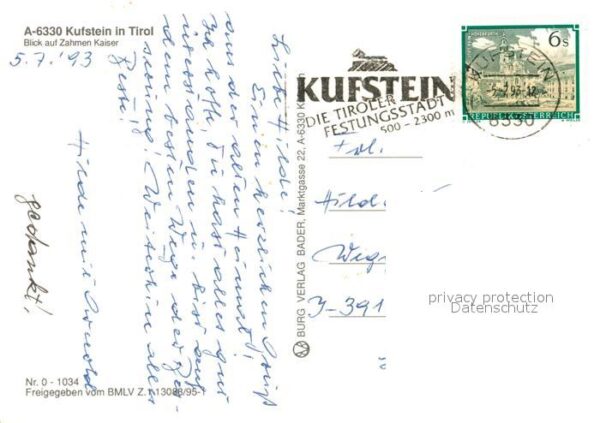 A-6330 Kufstein in Tirol
Blick auf Zahmen Kaiser
5.7.'93
Liebe Hilde!
Einen herzlichen Gruß
aus der alten Heimat!
Ich hoffe, Du hast alles gut
überstanden u. bist auf
dem besten Wege der Ge-
nesung. Weiterhin alles
Beste!
Hilde mit Arnold
gedankt!
Nr. 0 - 1034
Freigegeben vom BMLV Z. 13088/95-1
BURG VERLAG BADER, Marktgasse 22, A-6330 K
KUFSTEIN
DIE TIROLER
FESTUNGSSTADT
500 – 2300 m
6 s
REPUBLIK ÖSTERREICH
KUFSTEIN
6330
Hild.
Weg
I-391
privacy protection
Datenschutz